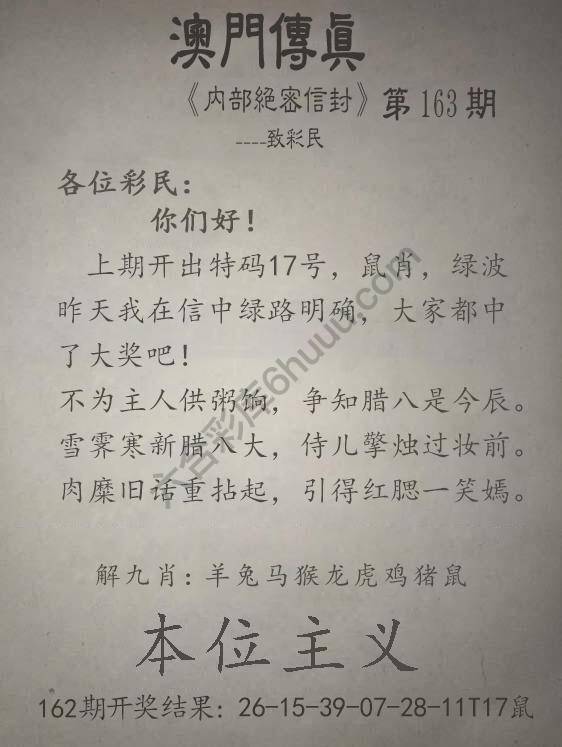 澳門傳眞
《内部絕密信封》第163期
----致彩民
各位彩民：
你们好！
上期开出特码17号，鼠肖，绿波
昨天我在信中绿路明确，大家都中
了大奖吧！
不为主人供粥饷，争知腊八是今辰。
雪霁寒新腊八大，侍儿擎烛过妆前。
肉糜旧话重拈起，引得红腮一笑嫣。
六合彩库6huuu.com
解九肖：羊兔马猴龙虎鸡猪鼠
本位主义
162期开奖结果：26-15-39-07-28-11T17鼠